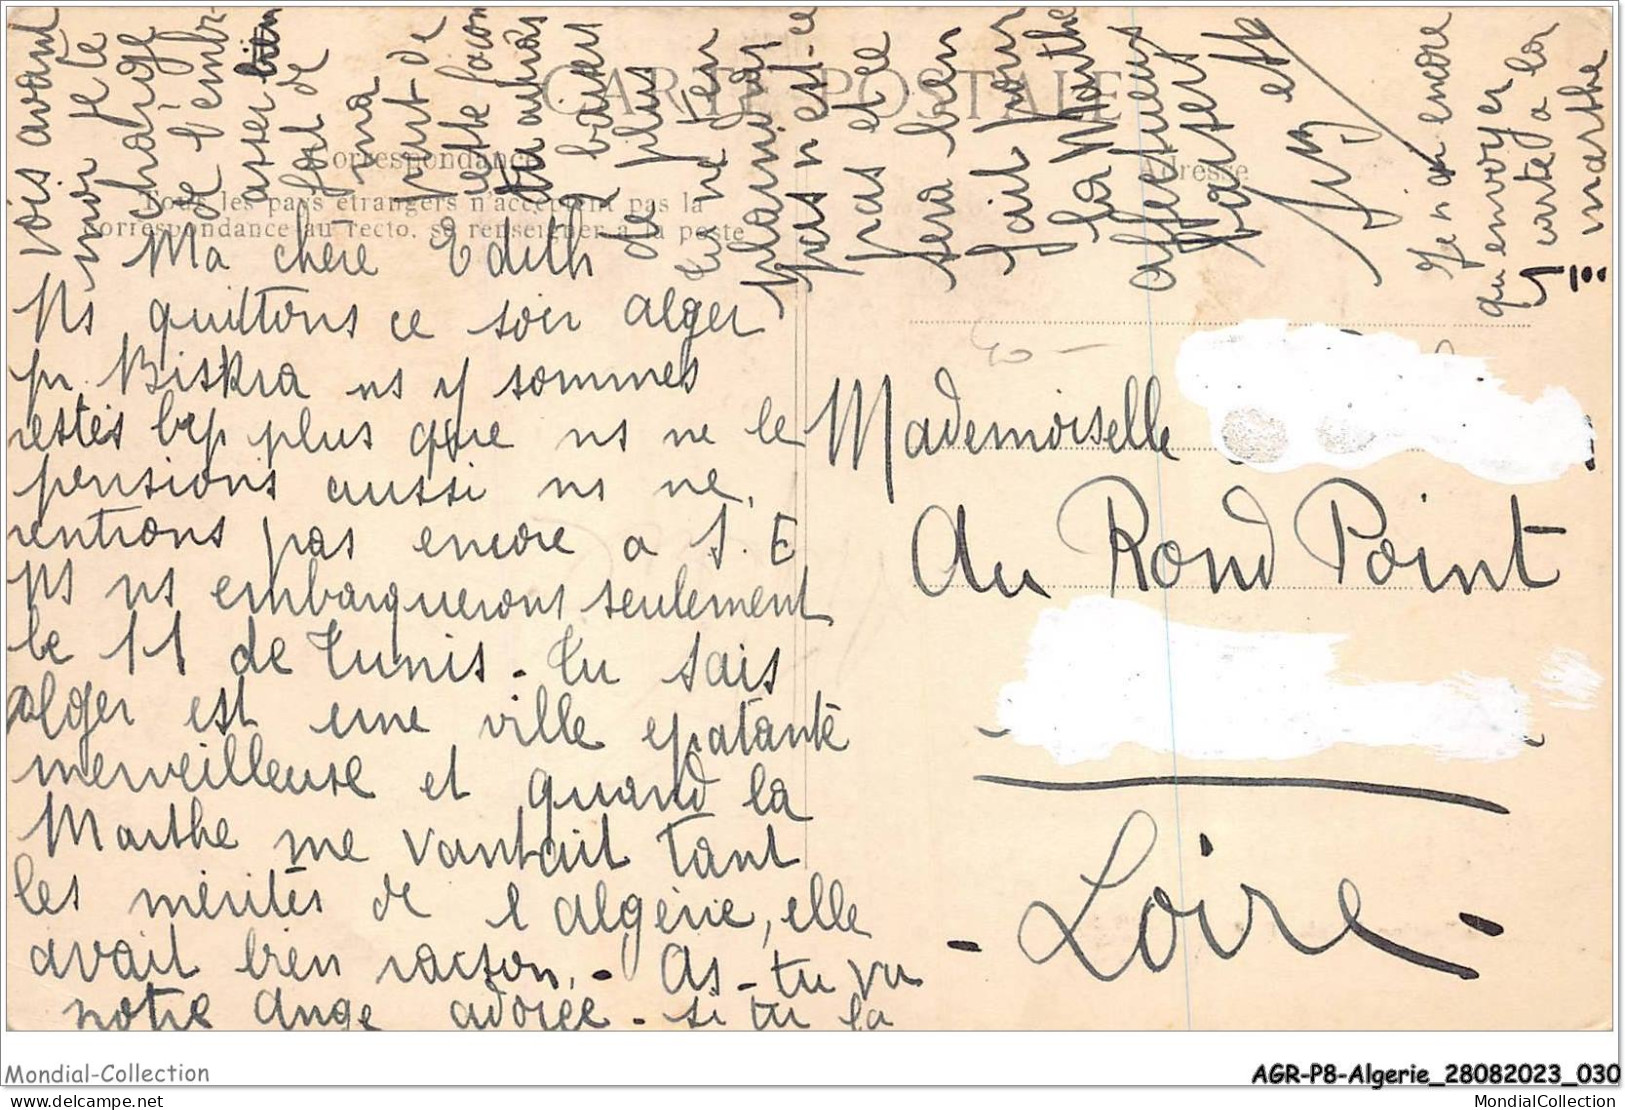 CARTE POSTALE
Correspondance
Adresse
Tous les pays étrangers n'acceptent pas la
correspondance au recto. se renseigner à la poste
Ma chère Edith
Ns quittons ce soir alger
pr. Biskra ns y sommes
restés bcp plus que ns ne le
pensions aussi ns ne
rentrons pas encore a S. E
Ns ns embarquerons seulement
le 11 de Tunis - Tu sais
alger est une ville epatante
merveilleuse et quand la
Marthe me vantait tant
les mérites de l algerie, elle
avait bien raison. - As - tu vu
notre Ange adorée - si tu la
vois avant
moi je te
charge
de l'embr-
asser bien
fort de
ma
part de
cette façon
tu auras
des baisers
de plus
tu ne t'en
plaindras
pas n'est-ce
pas et ce
sera bien
fait pour
la Marthe
affectueux
baisers
Je n ai encore
qu'envoyer
1 carte a la
marthe
!!!
Mademoiselle
Au Rond Point
- Loire -
Mondial-Collection
AGR-P8-Algerie_28082023_030
delcampe.net
MondialCollection